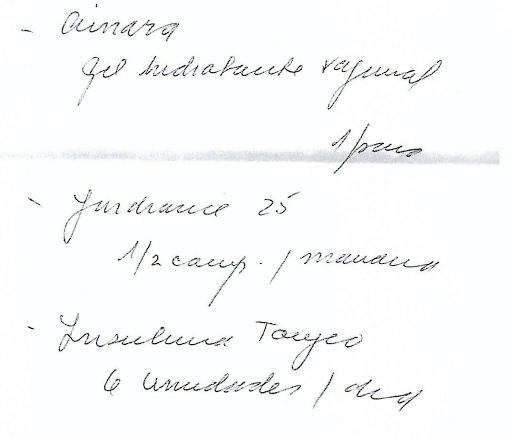 - Ainara
gel hidratante vaginal
1/
- 25
1/2 comp. / mañana
- Insulina Toujeo
6 Unidades / dia